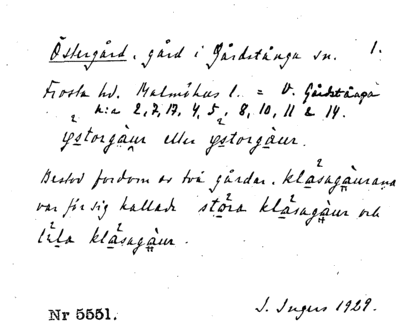 Östergård, gård i Gårdstånga sn. 1.
Frosta hd. Malmöhus l. = V. Gårdstånga
n:a 2, 7, 17, 4, 5, 8, 10, 11 & 14.
ystorgàur eller ystorgàur.
Bestod fordom av två gårdar. klåsagàurana
var för sig kallade stora klåsagàur och
lila klåsagàur.
Nr 5551. I. Ingers 1929.